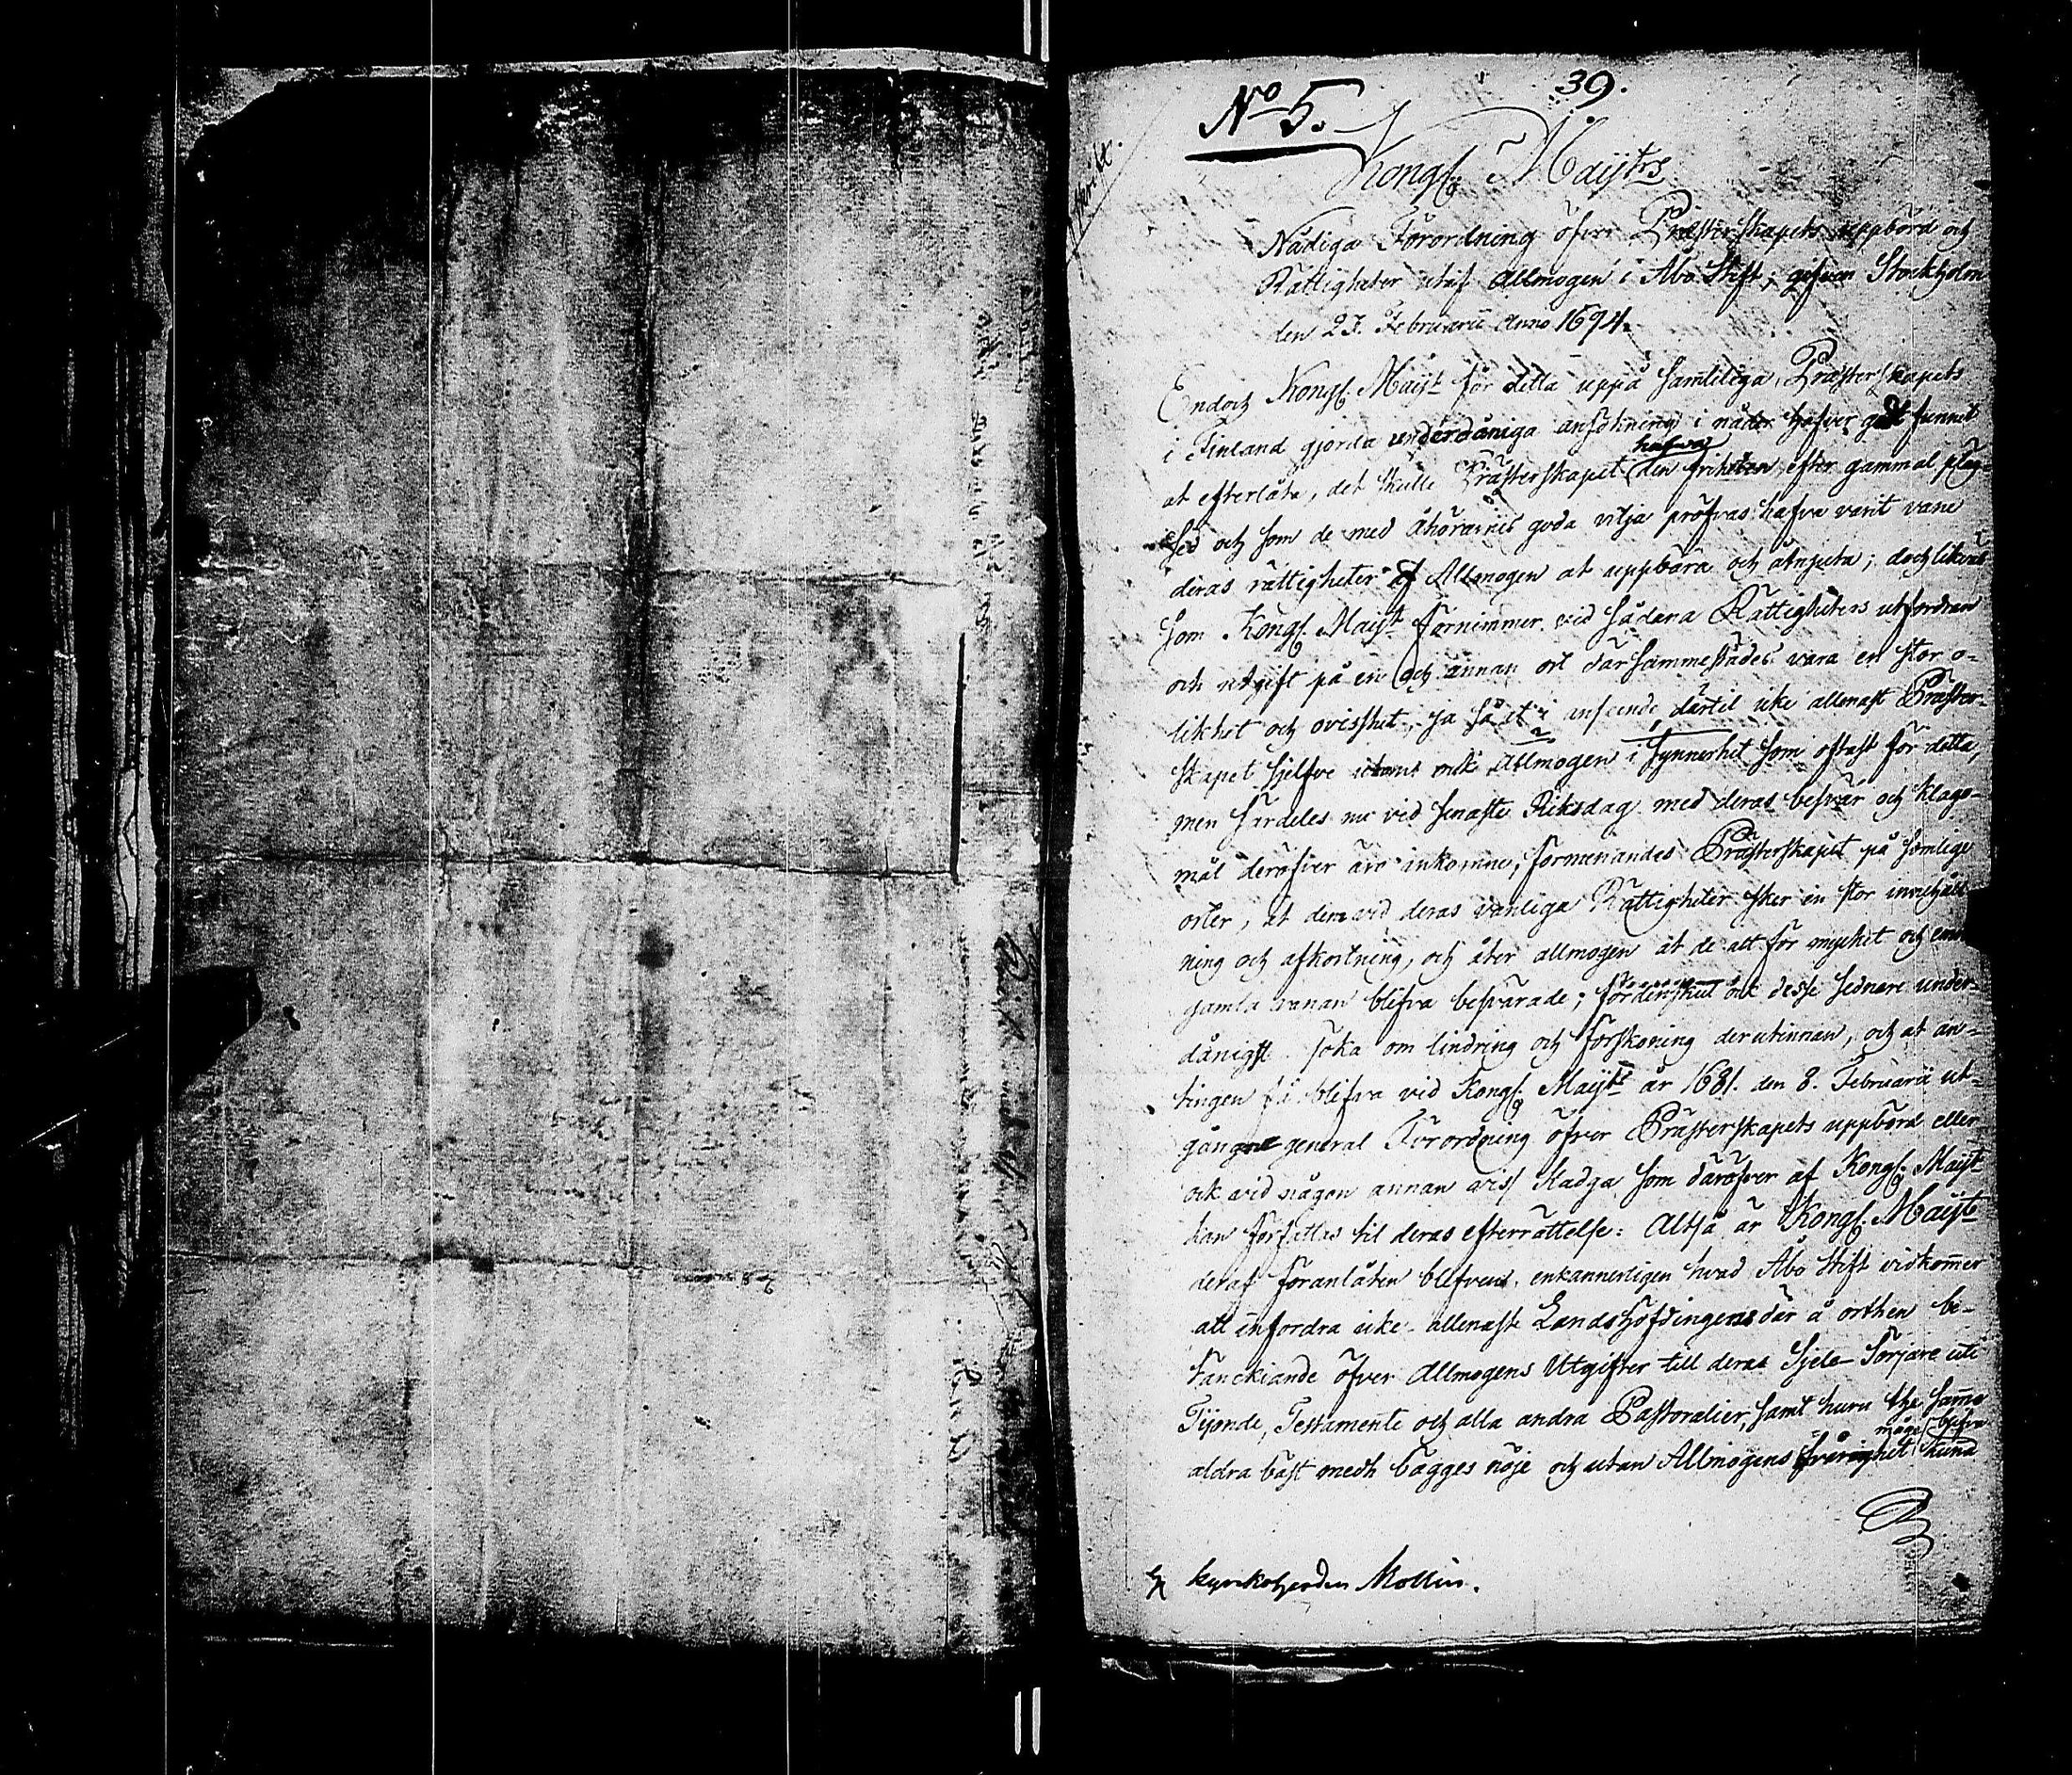 39.
No 5.
Kongl. Maijts
Nådiga Förordning öfver Präfterskapets uppbörd och
Rättigheter utaf Allmogen i Åbo Stift, gifven Stockholm
den 27. Februarii Anno 1694.
Endoch Kongl. Maijt för detta uppå samtliga Präfterskapets
i Finland gjorda underdåniga ansökning i nåder hafver godt funnit
at efterlåta, det skulle Präfterskapet hafva den friheten efter gammal pläg-
sed och som de med åhörarnes goda vilja pröfvas hafva varit vane
deras rättigheter af Allmogen at uppbära och åtnjuta; doch likväl
som Kongl. Maijt förnimmer vid sådana Rättigheters utfordran
och utgift på en och annan ort därsammestädes vara en stor o-
likhet och ovisshet, så at i anseende därtil icke allenast Präster-
skapet sjelfve utan ock Allmogen i synnerhet som oftast för detta,
men särdeles nu vid senaste Riksdag med deras besvär och klago-
mål deröfver äro inkomne, förmenandes Prästerskapet på somlige
orter, at dem vid deras vanliga Rättigheter sker en stor innehåll-
ning och afkortning, och åter allmogen at de alt för mycket och emot
gamla vanan blifva besvärade; fördenskul ock desse sednare under-
dånigst söka om lindring och förskoning derutinnan, och at an-
tingen få blifva vid Kongl. Maijts år 1681. den 8. Februarii ut-
gångne general Förordning öfver Prästerskapets uppbörd eller
ock vid någon annan viss stadga som däröfver af Kongl. Maijt
kan författas til deras efterrättelse: Altså är Kongl. Maijt
deraf föranlåten blifven, enkannerligen hvad Åbo Stift vidkommer
att infordra icke allenast Landshöfdingens där å orthen be-
tänckiande öfver Allmogens Utgifter till deras Sjele-Sörjare uti
Tijonde, Testamente och alla andra Pastoralier, samt huru the samme
aldra bäst medh bägges nöje och utan Allmogens måge
kyrkoherden Mollin.